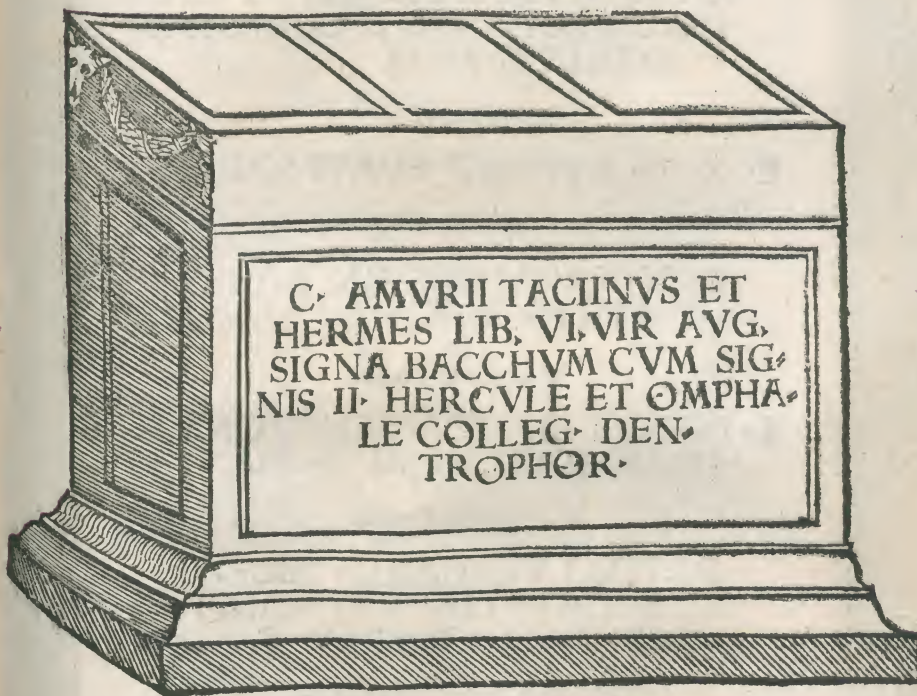 C· AMVRII TACIINVS ET
HERMES LIB, VI,VIR AVG,
SIGNA BACCHVM CVM SIG-
NIS II· HERCVLE ET OMPHA-
LE COLLEG· DEN-
TROPHOR·